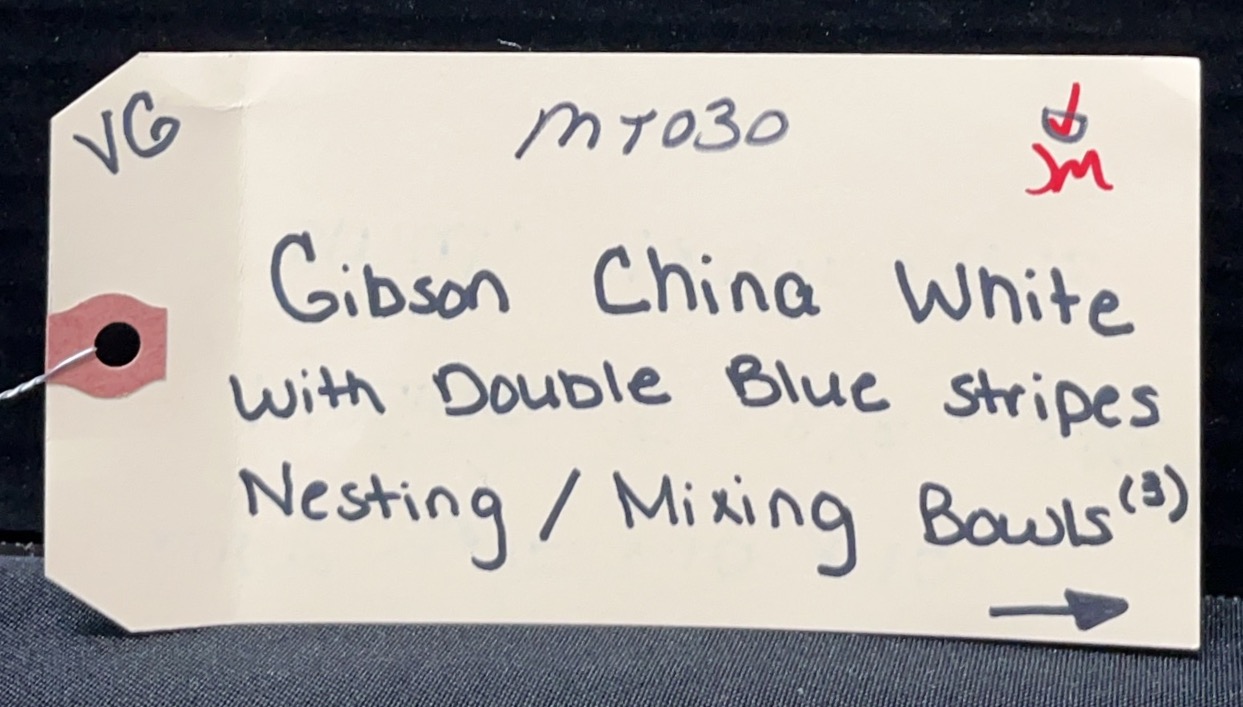 VG MT030
JM
Gibson China White
with Double Blue stripes
Nesting / Mixing Bowls (3)